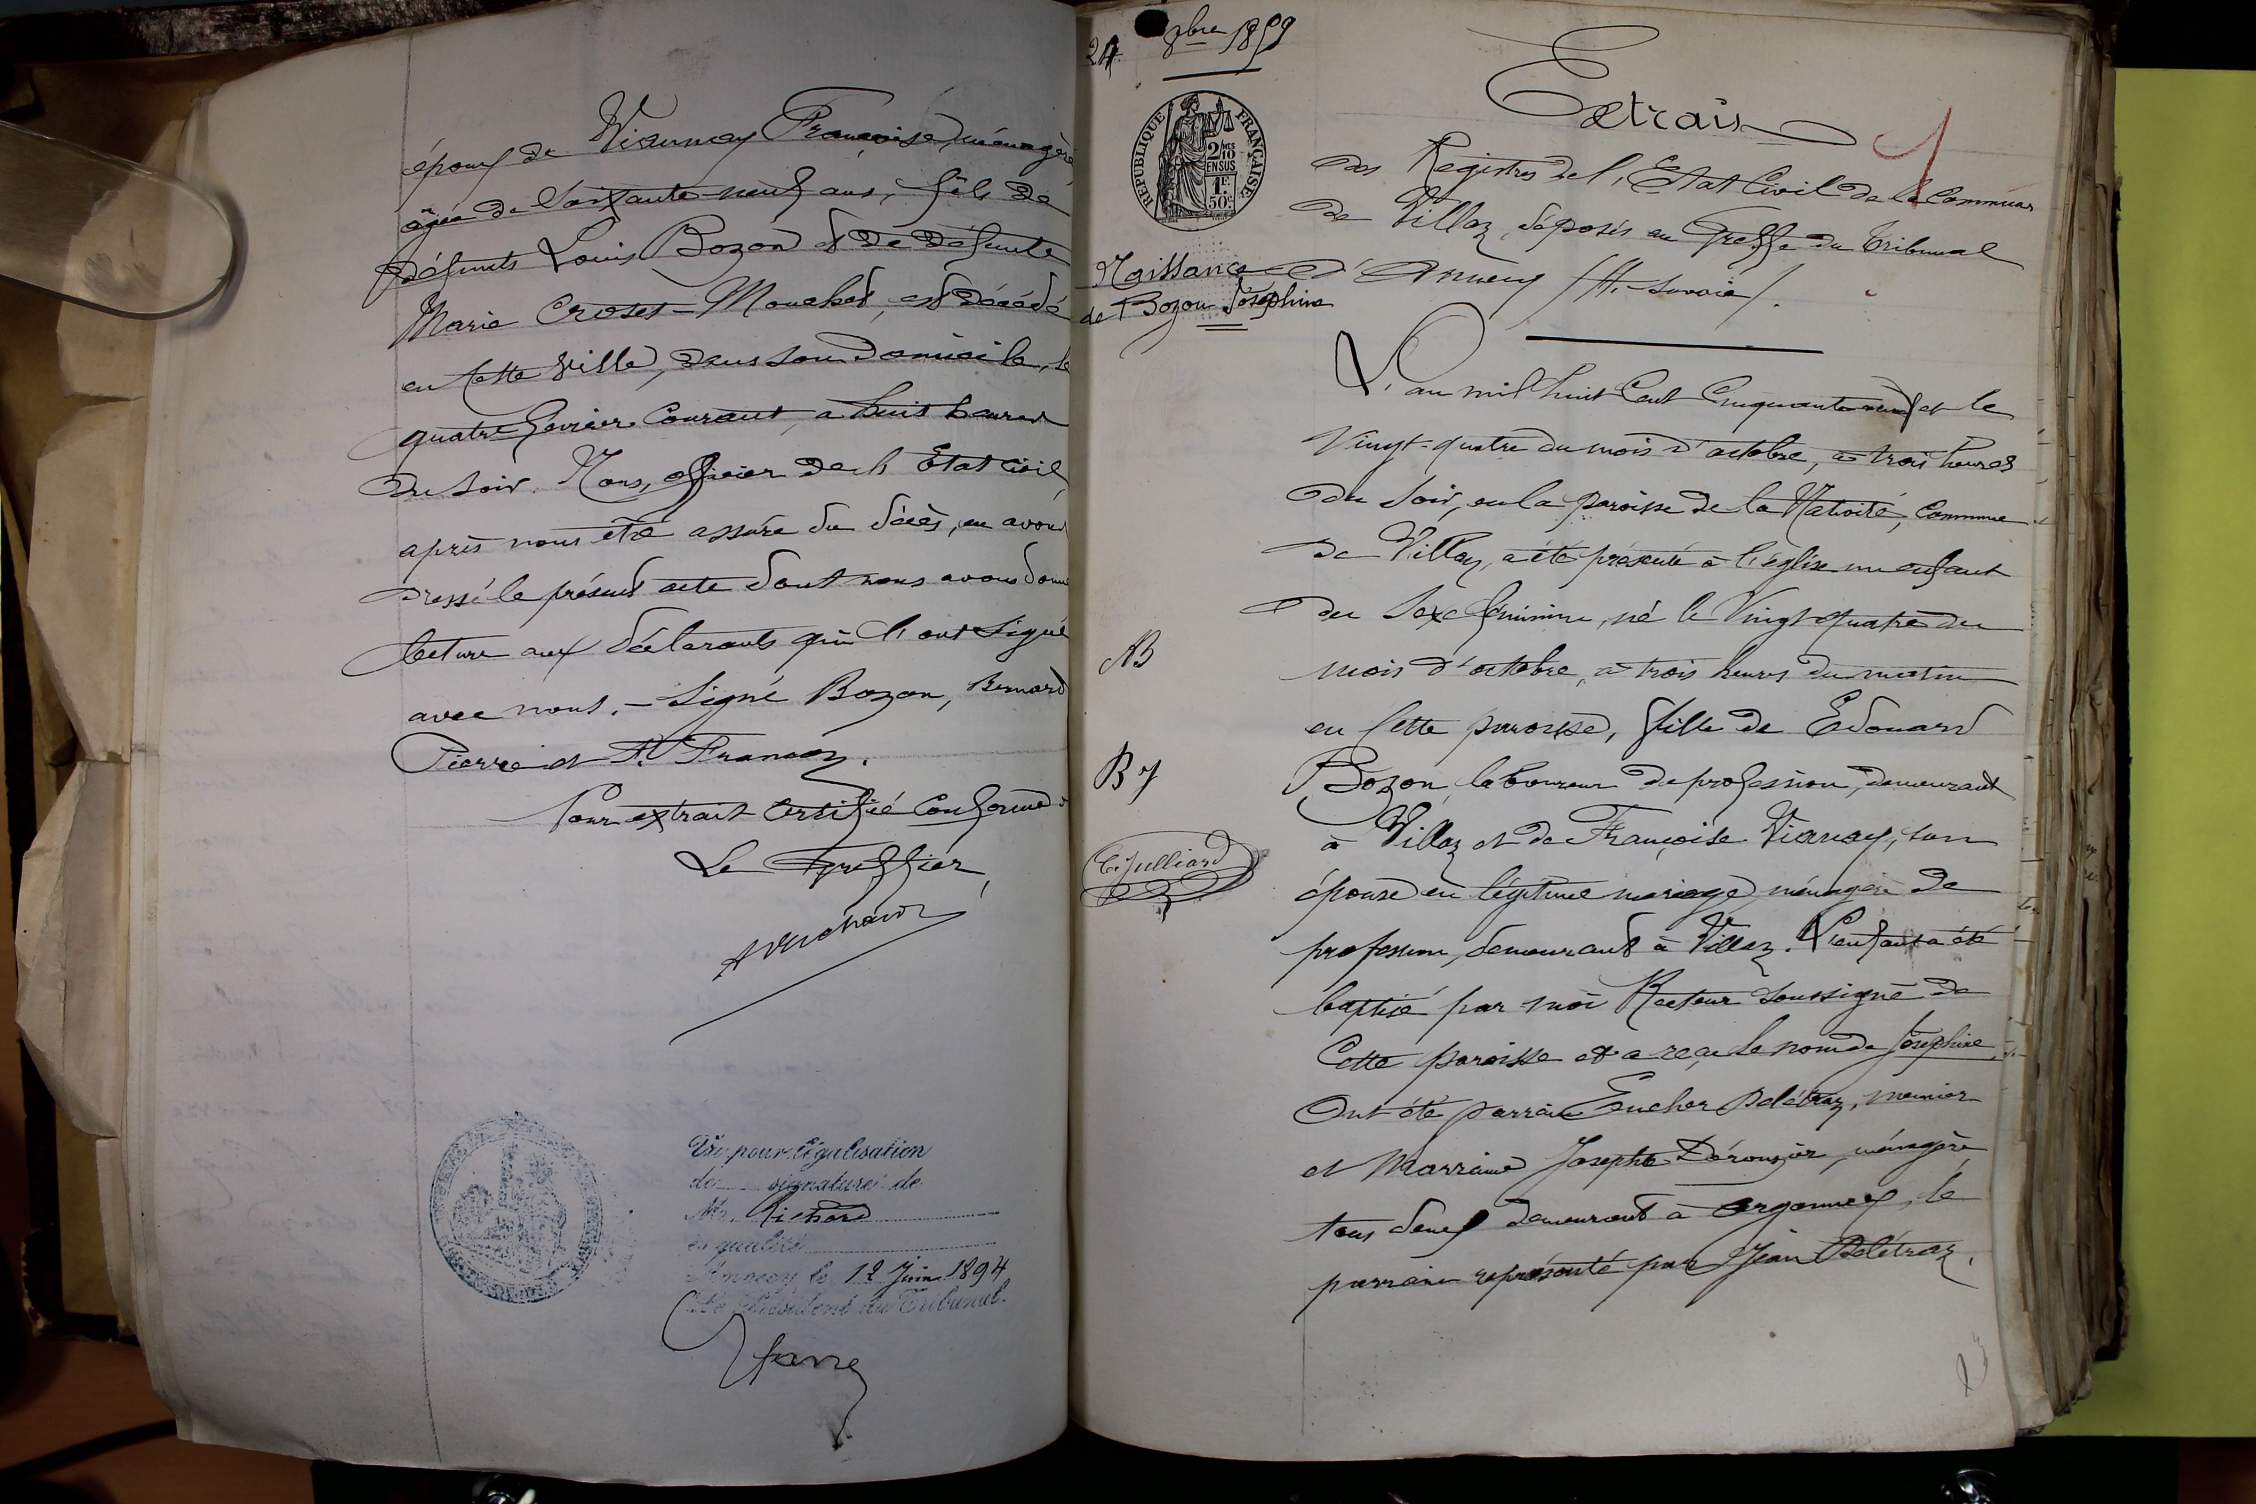 époux de Viannay Françoise, ménagère
âgée de soixante-neuf ans, fils de
défunts Louis Bozon et de défunte
Marie Croset-Mouchet, est décédé
en cette ville, dans son domicile, le
quatre février courant, à huit heures
du soir. Nous, officier de l'Etat civil
après nous être assuré du décès, en avons
dressé le présent acte dont nous avons donné
lecture aux déclarants qui l'ont signé
avec nous. - Signé Bozon, Bernard
Pierre et A. Francoz.
Pour extrait certifié conforme
Le Greffier,
Vu pour légalisation
de signature de
Mr. Richard
en qualité
Annecy le 12 Juin 1894
Le Président du Tribunal.
24 8bre 1859
REPUBLIQUE FRANÇAISE
2/10 EN SUS
1F 50c
Naissance
de Bozon Joséphine
AB
By
C. Julliard
Extrait
des Registres de l'Etat Civil de la Commune
de Villaz, déposés au Greffe du Tribunal
d'Annecy (H.-Savoie).
L'an mil huit cent cinquante neuf et le
vingt-quatre du mois d'octobre, à trois heures
du soir, en la paroisse de la Nativité, commune
de Villaz, a été présenté à l'église un enfant
du sexe féminin, né le vingt-quatre du
mois d'octobre, à trois heures du matin
en cette paroisse, fille de Edouard
Bozon, laboureur de profession, demeurant
à Villaz et de Françoise Vianay, son
épouse en légitime mariage, ménagère de
profession, demeurant à Villaz. L'enfant a été
baptisé par moi Recteur soussigné de
cette paroisse et a reçu le nom de Joséphine.
Ont été parrain Eucher Pelétraz, meunier
et marraine Josephte Dérouzier, ménagère
tous deux demeurant à Argonnex, le
parrain représenté par Jean Pelétraz.